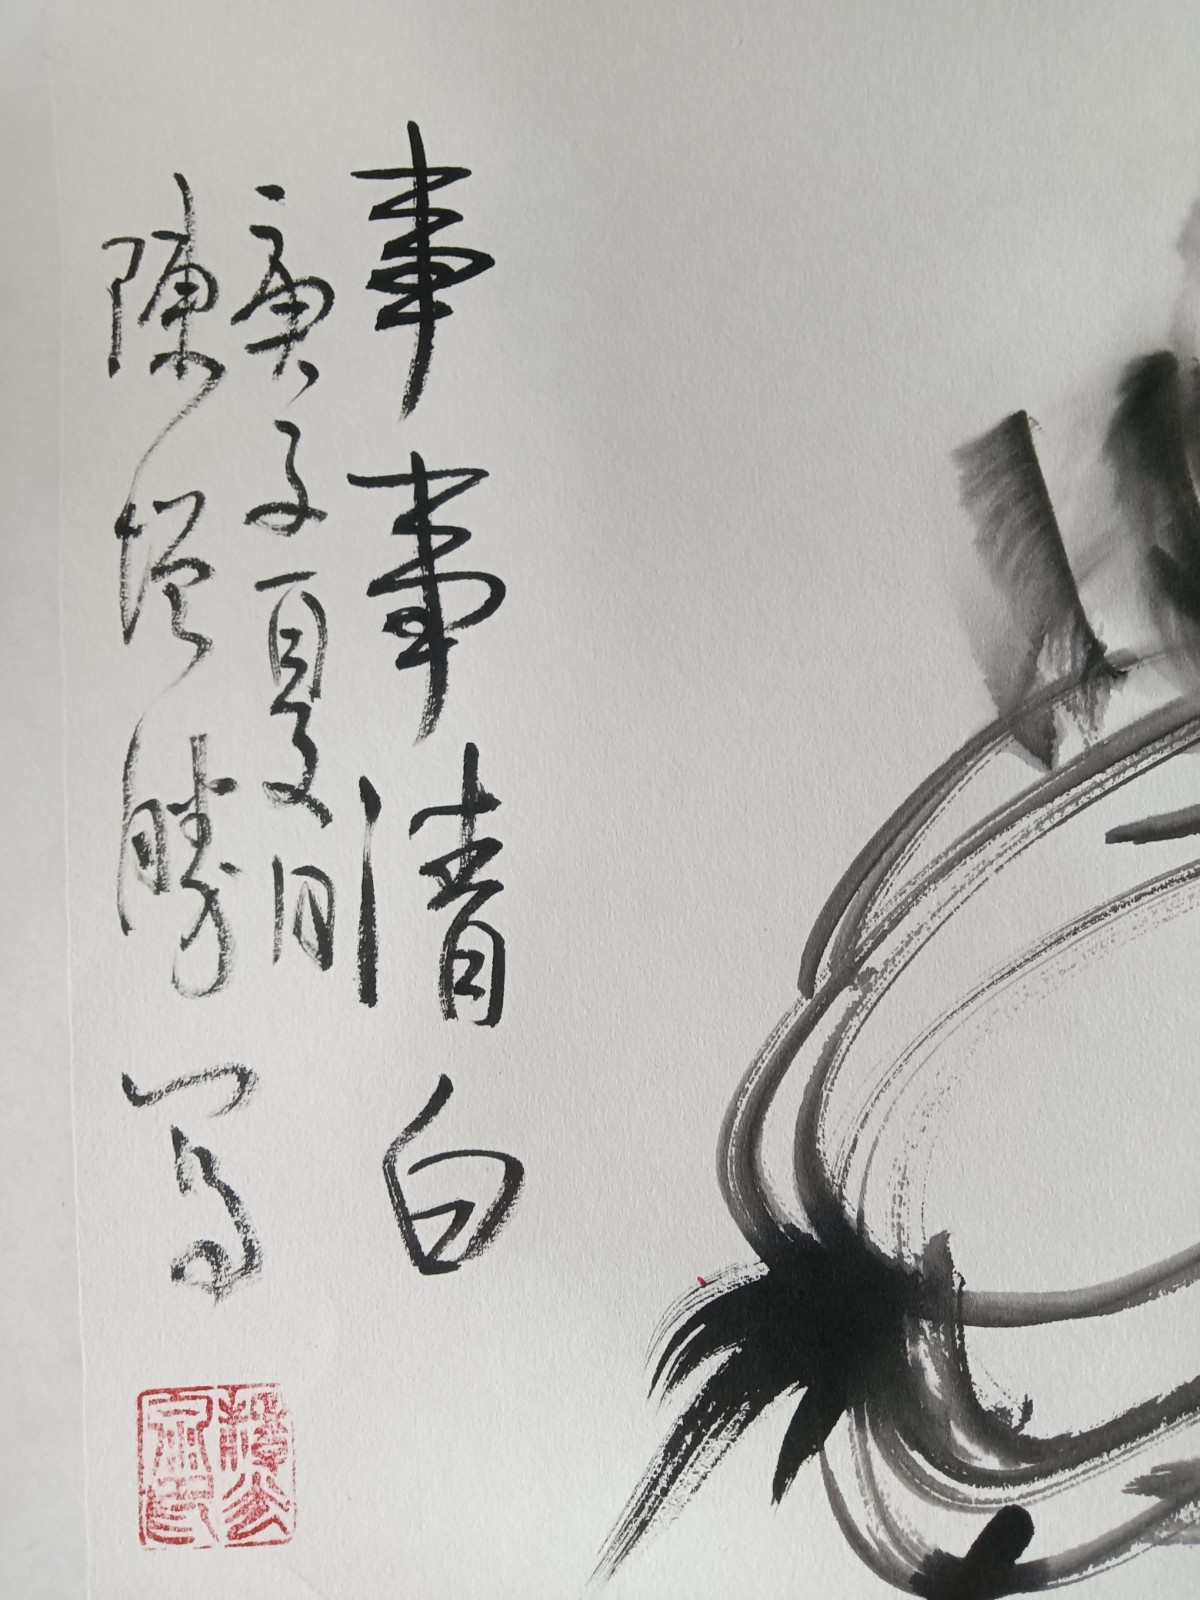 事事清白
庚子夏月
陳增勝写